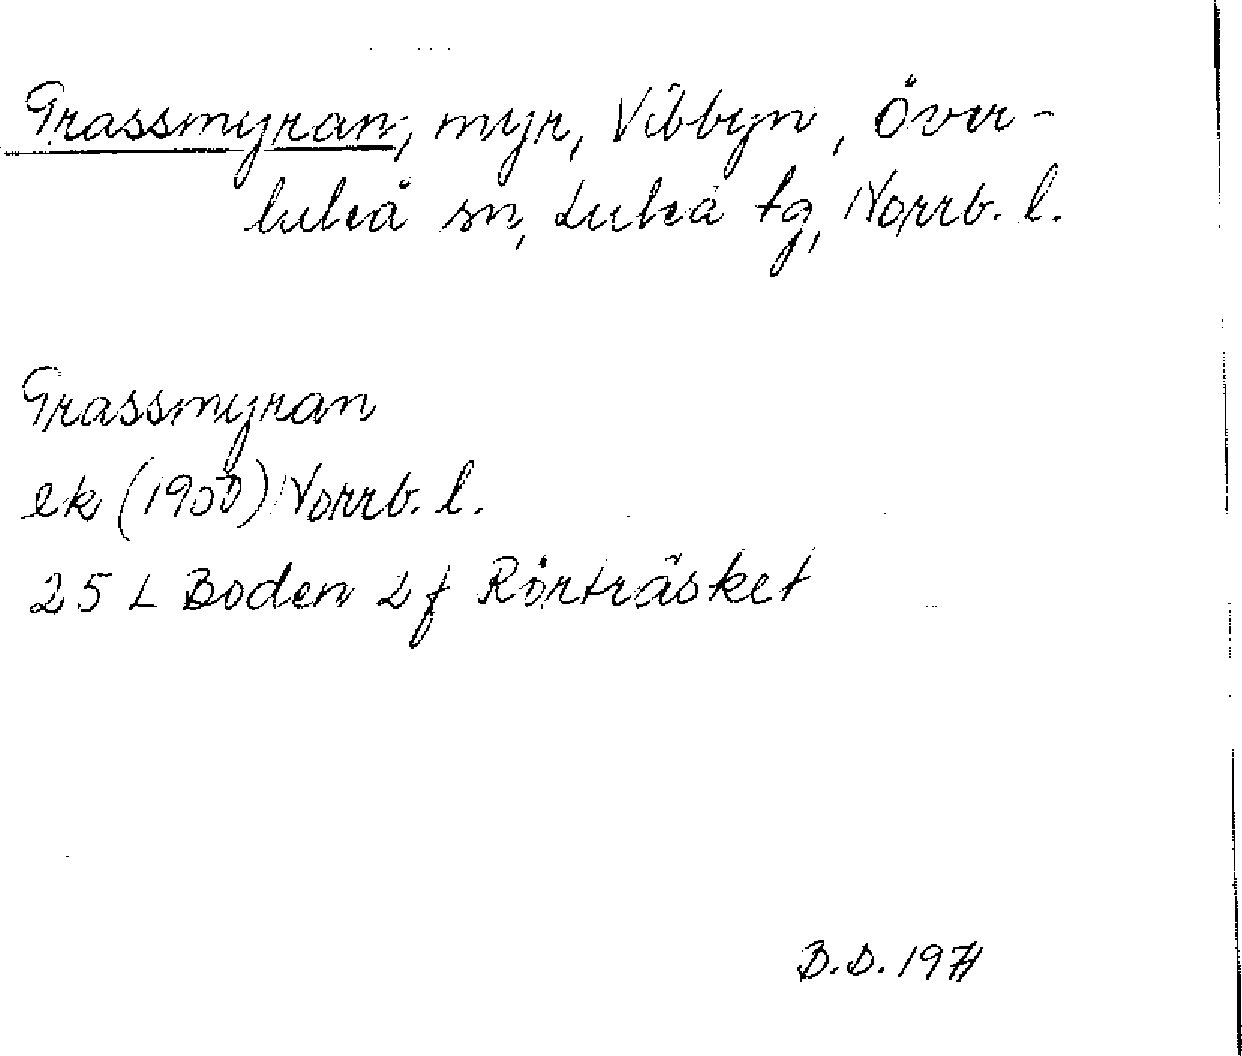 Grassmyran, myr, Vibbyn, Över-
luleå sn, Luleå tg, Norrb. l.
Grassmyran
ek (1950) Norrb. l.
25 L Boden 2f Rörträsket
B.D. 1971